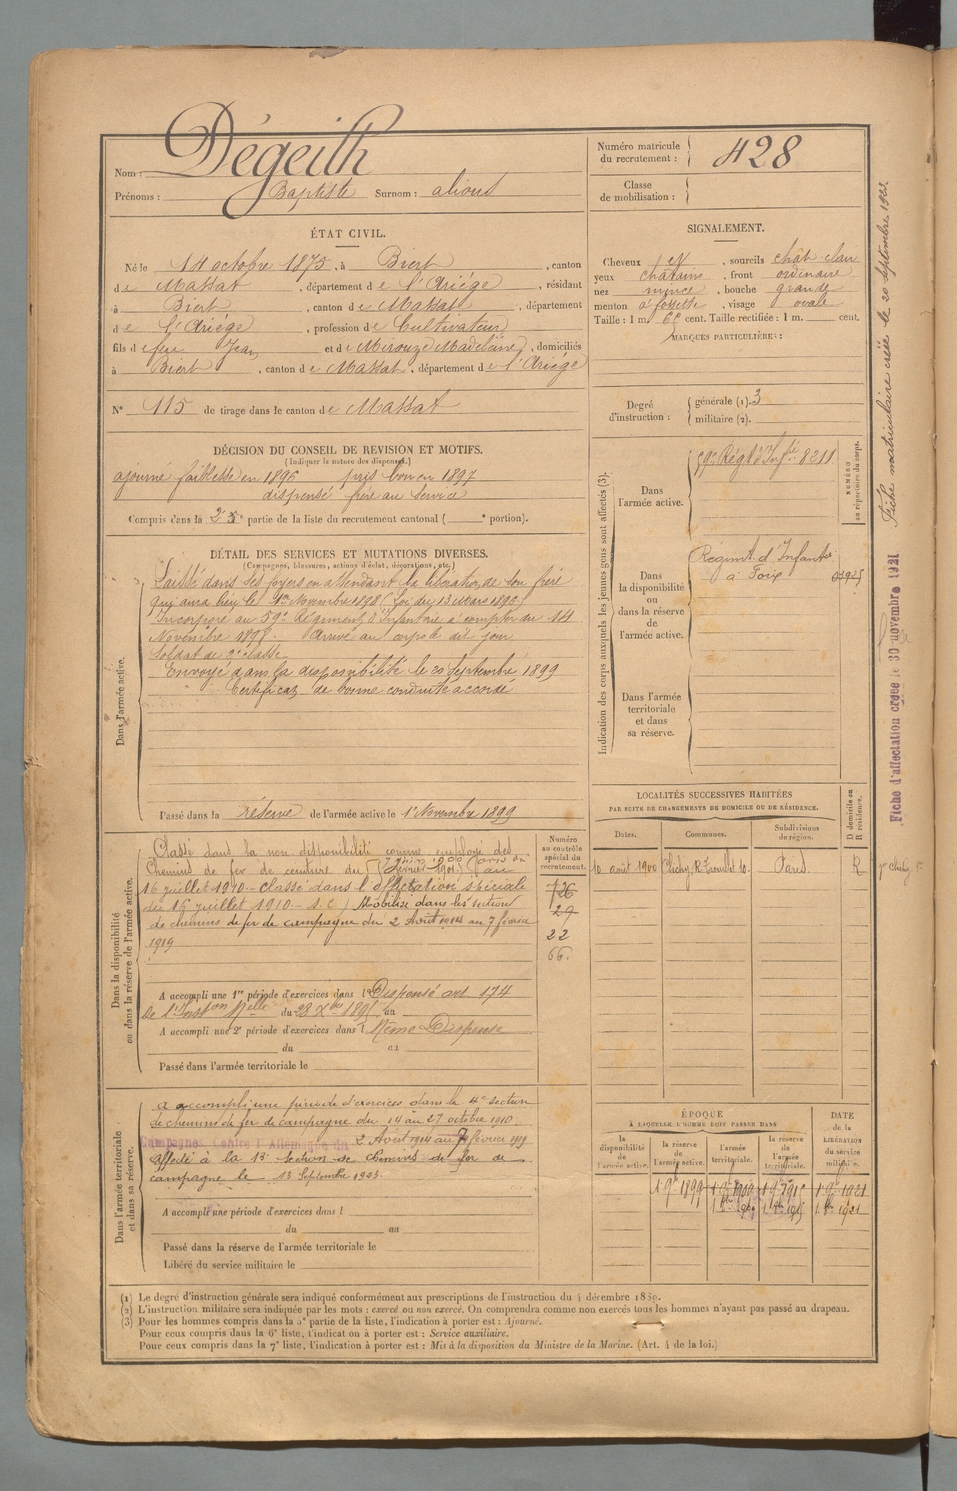 Nom : Dégeilh
Prénoms : Baptiste Surnom : alious
Numéro matricule du recrutement : 428
Classe de mobilisation :
ÉTAT CIVIL.
Né le 14 octobre 1875, à Biert, canton
de Massat, département de l'Ariège, résidant
à Biert, canton de Massat, département
de l'Ariège, profession de Cultivateur
fils de feu Jean et de Mirouze Madeleine, domiciliés
à Biert, canton de Massat, département de l'Ariège
N° 115 de tirage dans le canton de Massat
SIGNALEMENT.
Cheveux N, sourcils chât-clair
yeux châtains, front ordinaire
nez mince, bouche grande
menton à fossette, visage ovale
Taille : 1 m. 65 cent. Taille rectifiée : 1 m. cent.
MARQUES PARTICULIÈRES :
Degré d'instruction : générale (1). 3
militaire (2).
DÉCISION DU CONSEIL DE REVISION ET MOTIFS.
(Indiquer la nature des dispenses.)
ajourné faiblesse en 1896 pris bon en 1897
dispensé frère au service
Compris dans la 2e partie de la liste du recrutement cantonal ( e portion).
DÉTAIL DES SERVICES ET MUTATIONS DIVERSES.
(Campagnes, blessures, actions d'éclat, décorations, etc.)
Dans l'armée active.
Laissé dans ses foyers en attendant la libération de son frère
qui aura lieu le 1er Novembre 1898 (Loi du 13 Mars 1896)
Incorporé au 59e Régiment d'Infanterie à compter du 14
Novembre 1898. Arrivé au corps le dit jour
Soldat de 2e classe.
Envoyé dans la disponibilité le 20 Septembre 1899
Certificat de bonne conduite accordé
Passé dans la réserve de l'armée active le 1er Novembre 1899
Indication des corps auxquels les jeunes gens sont affectés (3).
NUMÉRO au répertoire du corps.
Dans l'armée active.
59e Régt d'Infie 8211
Dans la disponibilité ou dans la réserve de l'armée active.
Régimt d'Infanterie
à Foix 03925
Dans l'armée territoriale et dans sa réserve.
LOCALITÉS SUCCESSIVES HABITÉES
PAR SUITE DE CHANGEMENTS DE DOMICILE OU DE RÉSIDENCE.
Dates. Communes. Subdivisions de région. D domicile ou R résidence.
10 août 1900 Clichy R. Trouillet 10. Paris. R
Dans la disponibilité ou dans la réserve de l'armée active.
Numéro au contrôle spécial du recrutement.
Classé dans la non disponibilité comme employé des
Chemins de fer de ceinture du
16 juillet 1910 - classé dans l'affectation spéciale
du 16 juillet 1910 - S.C) Mobilisé dans les section
de chemins de fer de campagne du 2 Août 1914 au 7 février
1919
726
29
22
66.
A accompli une 1re période d'exercices dans l Dispensé art 174
de l'Inston Melle du 28 Xbre 1895 au
A accompli une 2e période d'exercices dans l Même Dispense
du au
Passé dans l'armée territoriale le
Dans l'armée territoriale et dans sa réserve.
a accompli une période d'exercices dans la 4e section
de chemins de fer de campagne du 14 au 27 octobre 1910
Campagnes Contre l'Allemagne du 2 Août 1914 au 7 février 1919
affecté à la 13e section de chemins de fer de
campagne le 13 Septembre 1923
A accompli une période d'exercices dans l
du au
Passé dans la réserve de l'armée territoriale le
Libéré du service militaire le
ÉPOQUE
À LAQUELLE L'HOMME DOIT PASSER DANS
la disponibilité de l'armée active. la réserve de l'armée active. l'armée territoriale. la réserve de l'armée territoriale.
DATE de la LIBÉRATION du service militaire.
Fiche matriculaire créée le 20 Septembre 1922
Fiche d'affectation créée le 30 novembre 1921
(1) Le degré d'instruction générale sera indiqué conformément aux prescriptions de l'instruction du 4 décembre 1889.
(2) L'instruction militaire sera indiquée par les mots : exercé ou non exercé. On comprendra comme non exercés tous les hommes n'ayant pas passé au drapeau.
(3) Pour les hommes compris dans la 5e partie de la liste, l'indication à porter est : Ajourné.
Pour ceux compris dans la 6e liste, l'indication à porter est : Service auxiliaire.
Pour ceux compris dans la 7e liste, l'indication à porter est : Mis à la disposition du Ministre de la Marine. (Art. 4 de la loi.)